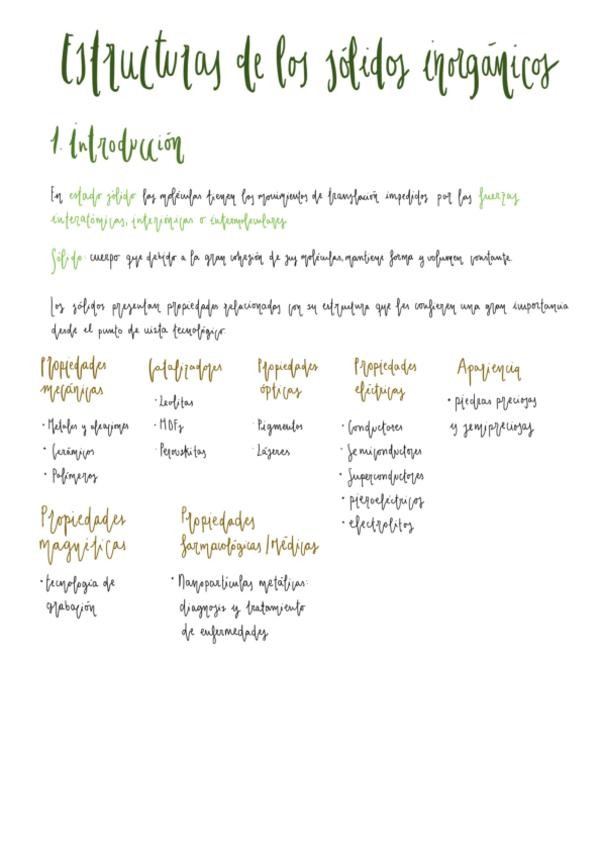 Estructuras de los sólidos inorgánicos
1. Introducción
En estado sólido las moléculas tienen los movimientos de translación impedidos por las fuerzas
interatómicas, interiónicas o intermoleculares.
Sólido: cuerpo que debido a la gran cohesión de sus moléculas, mantiene forma y volumen constante.
Los sólidos presentan propiedades relacionados con su estructura que les confieren una gran importancia
desde el punto de vista tecnológico.
Propiedades
mecánicas
· Metales y aleaciones
· Cerámicos
· Polímeros
Catalizadores
· Zeolitas
· MOFs
· Perovskitas
Propiedades
ópticas
· Pigmentos
· Láseres
Propiedades
eléctricas
· Conductores
· Semiconductores
· Superconductores
· piezoeléctricos
· electrolitos
Apariencia
· piedras preciosas
y semipreciosas
Propiedades
magnéticas
· tecnología de
grabación
Propiedades
farmacológicas/Médicas
· Nanopartículas metálicas:
diagnosis y tratamiento
de enfermedades